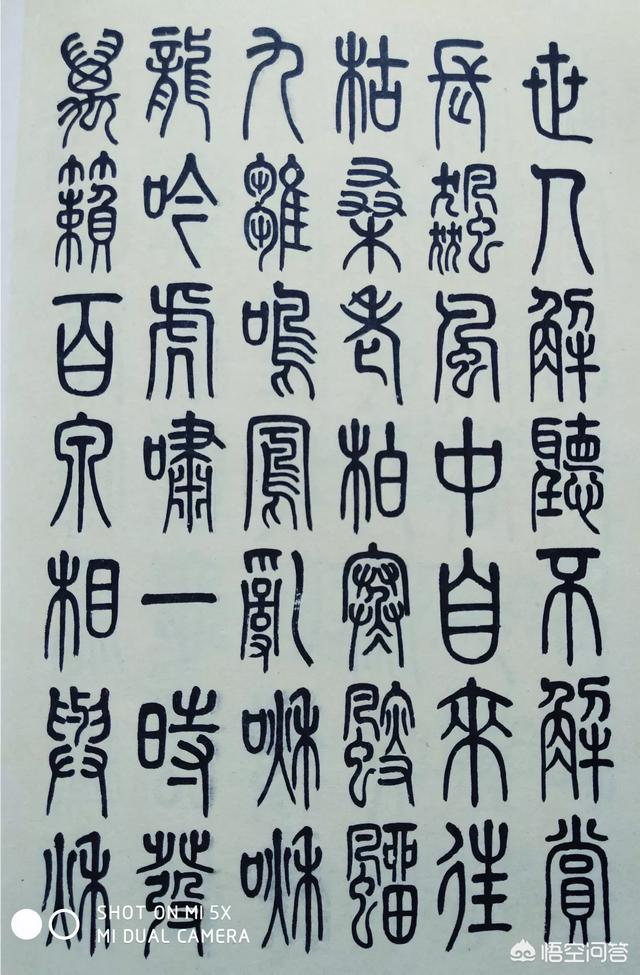 世人解聽不解賞
長飆風中自來往
枯桑老柏寒颼飀
九雛鳴鳳亂啾啾
龍吟虎嘯一時發
萬籟百泉相與秋
SHOT ON MI 5X
MI DUAL CAMERA
悟空问答